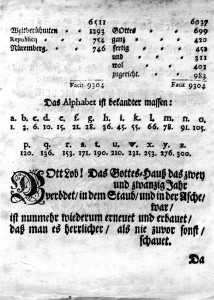 6511 6037
Weltberühmten 1293 GOttes 699
Republicq 754 ganz 420
Nüremberg. 746 fertig 452
und 311
Facit 9304 wol 403
zugericht. 982
Facit 9304
Das Alphabet ist bekandter massen:
a. b. c. d. e. f. g. h. i. k. l. m. n. o.
1. 3. 6. 10. 15. 21. 28. 36. 45. 55. 66. 78. 91. 105.
p. q. r. s. t. u. w. x. y. z.
120. 136. 153. 171. 190. 210. 231. 253. 276. 300.
GOtt Lob! Das Gottes-Hauß das zwey
und zwanzig Jahr
verödet/ in dem Staub/ und in der Asche
war/
ist nunmehr wiederum erneuet und erbauet/
daß man es herrlicher/ als nie zuvor sonst/
schauet.
Da